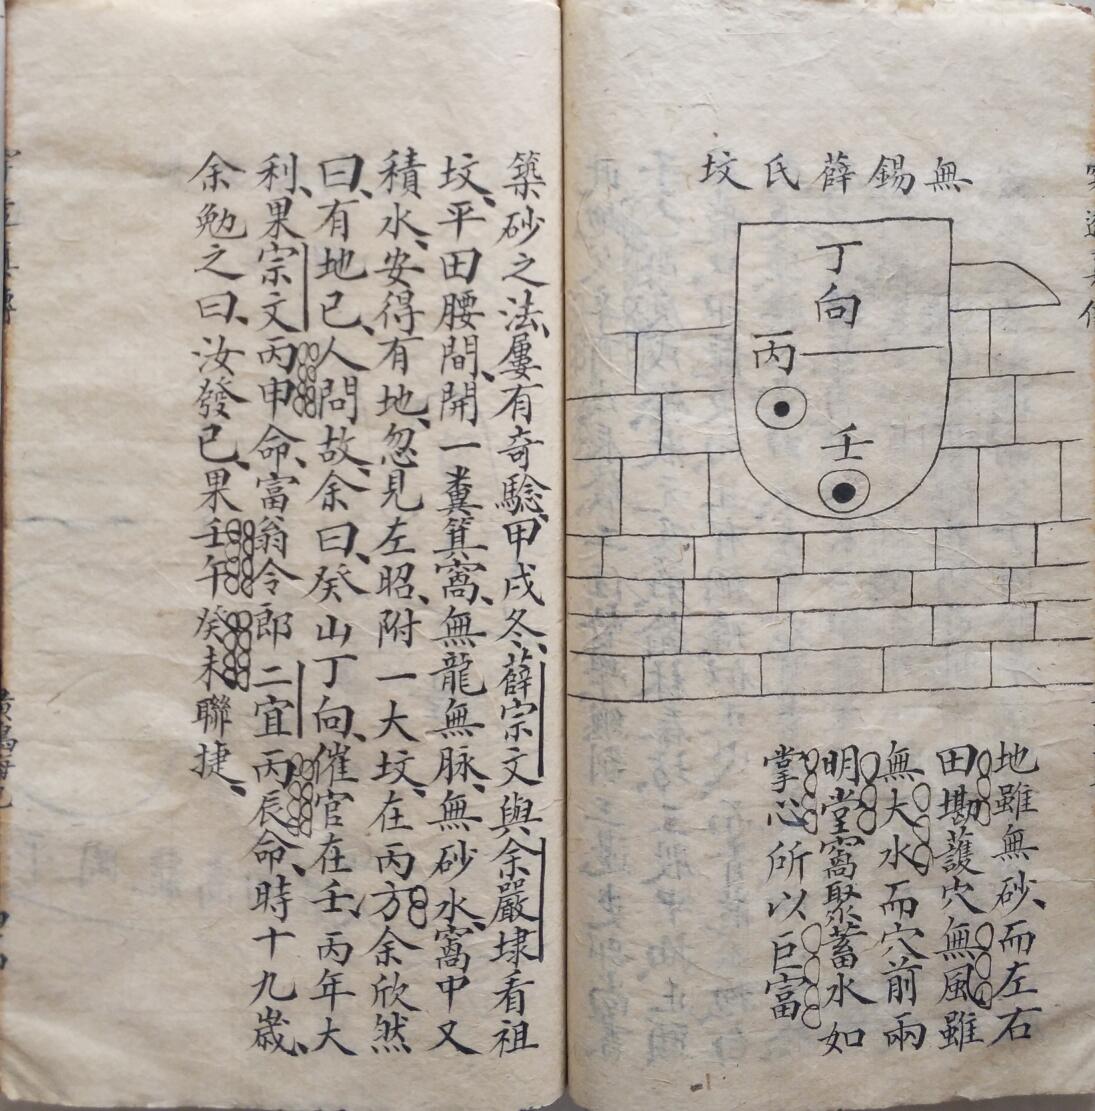 無錫薛氏墳
丁向
丙
壬
地雖無砂而左右
田塍護穴無風雖
無大水而穴前兩
明堂窩聚蓄水如
掌心所以巨富
築砂之法屢有奇驗甲戌冬薛宗文與余嚴埭看祖
坟平田腰間開一糞箕窩無龍無脉無砂水窩中又
積水安得有地忽見左昭附一大坟在丙方余欣然
曰有地已人問故余曰癸山丁向催官在壬丙年大
利果宗文丙申命富翁令郎二宜丙辰命時十九歲
余勉之曰汝發已果壬午癸未聯捷